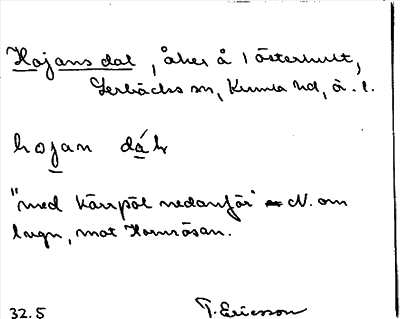 Hojans dal, åker å 1 Österhult,
Lerbäcks sn, Kumla hd, ö. l.
hojan dál
"med kärrpöl nedanför" N. om
lugn, mot Hornåsan.
32.5 T. Ericsson